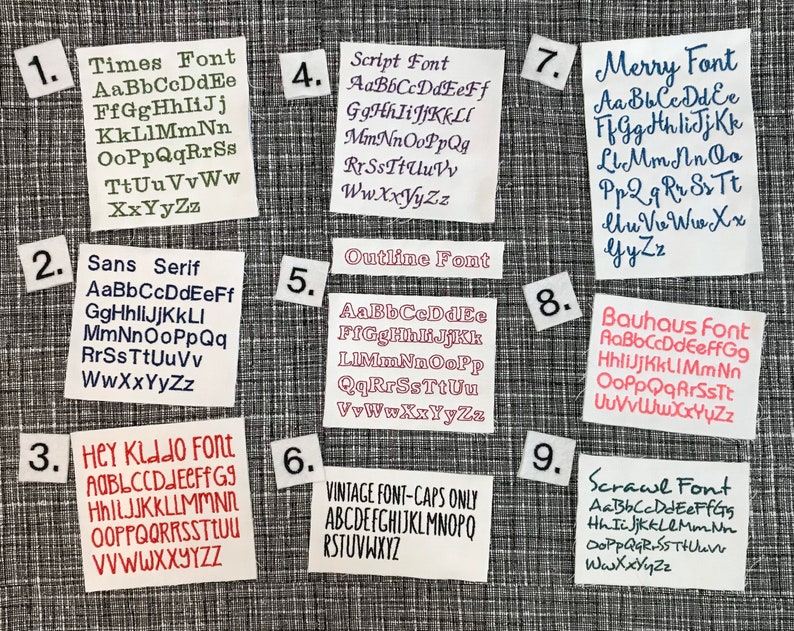 1.
Times Font
AaBbCcDdEe
FfGgHhIiJj
KkLlMmNn
OoPpQqRrSs
TtUuVvWw
XxYyZz
2.
Sans Serif
AaBbCcDdEeFf
GgHhIiJjKkLl
MmNnOoPpQq
RrSsTtUuVv
WwXxYyZz
3.
HEY KIddO FONT
AaBbCcDdEEFfGg
HhIiJJKKLLMMNn
OOPPQQRRSSTTUU
VVWWXXYYZZ
4.
Script Font
AaBbCcDdEeFf
GgHhIiJjKkLl
MmNnOoPpQq
RrSsTtUuVv
WwXxYyZz
5.
Outline Font
AaBbCcDdEe
FfGgHhIiJjKk
LlMmNnOoPp
QqRrSsTtUu
VvWwXxYyZz
6.
VINTAGE FONT-CAPS ONLY
ABCDEFGHIJKLMNOPQ
RSTUVWXYZ
7.
Merry Font
AaBbCcDdEe
FfGgHhIiJjKk
LlMmNnOo
PpQqRrSsTt
UuVvWwXx
YyZz
8.
Bauhaus Font
AaBbCcDdEeFfGg
HhIiJjKkLlMmNn
OoPpQqRrSsTt
UuVvWwXxYyZz
9.
Scrawl Font
AaBbCcDdEeFfGg
HhIiJjKkLlMmNn
OoPpQqRrSsTtUuVv
WwXxYyZz